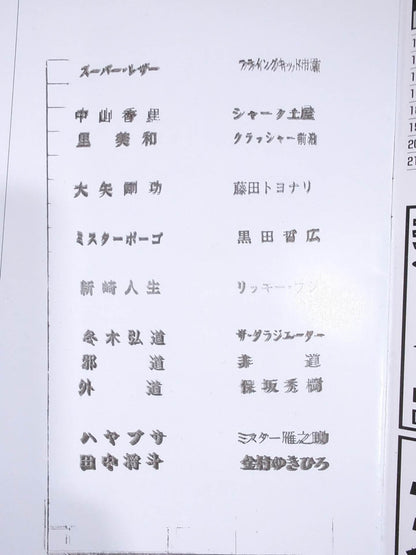 スーパー・レザー フライングキッド市原
中山香里 シャーク土屋
里美和 クラッシャー前泊
大矢剛功 藤田トヨナリ
ミスターポーゴ 黒田哲広
新崎人生 リッキー・フジ
冬木弘道 ザ・グラジエーター
邪道 非道
外道 保坂秀樹
ハヤブサ ミスター雁之助
田中将斗 金村ゆきひろ